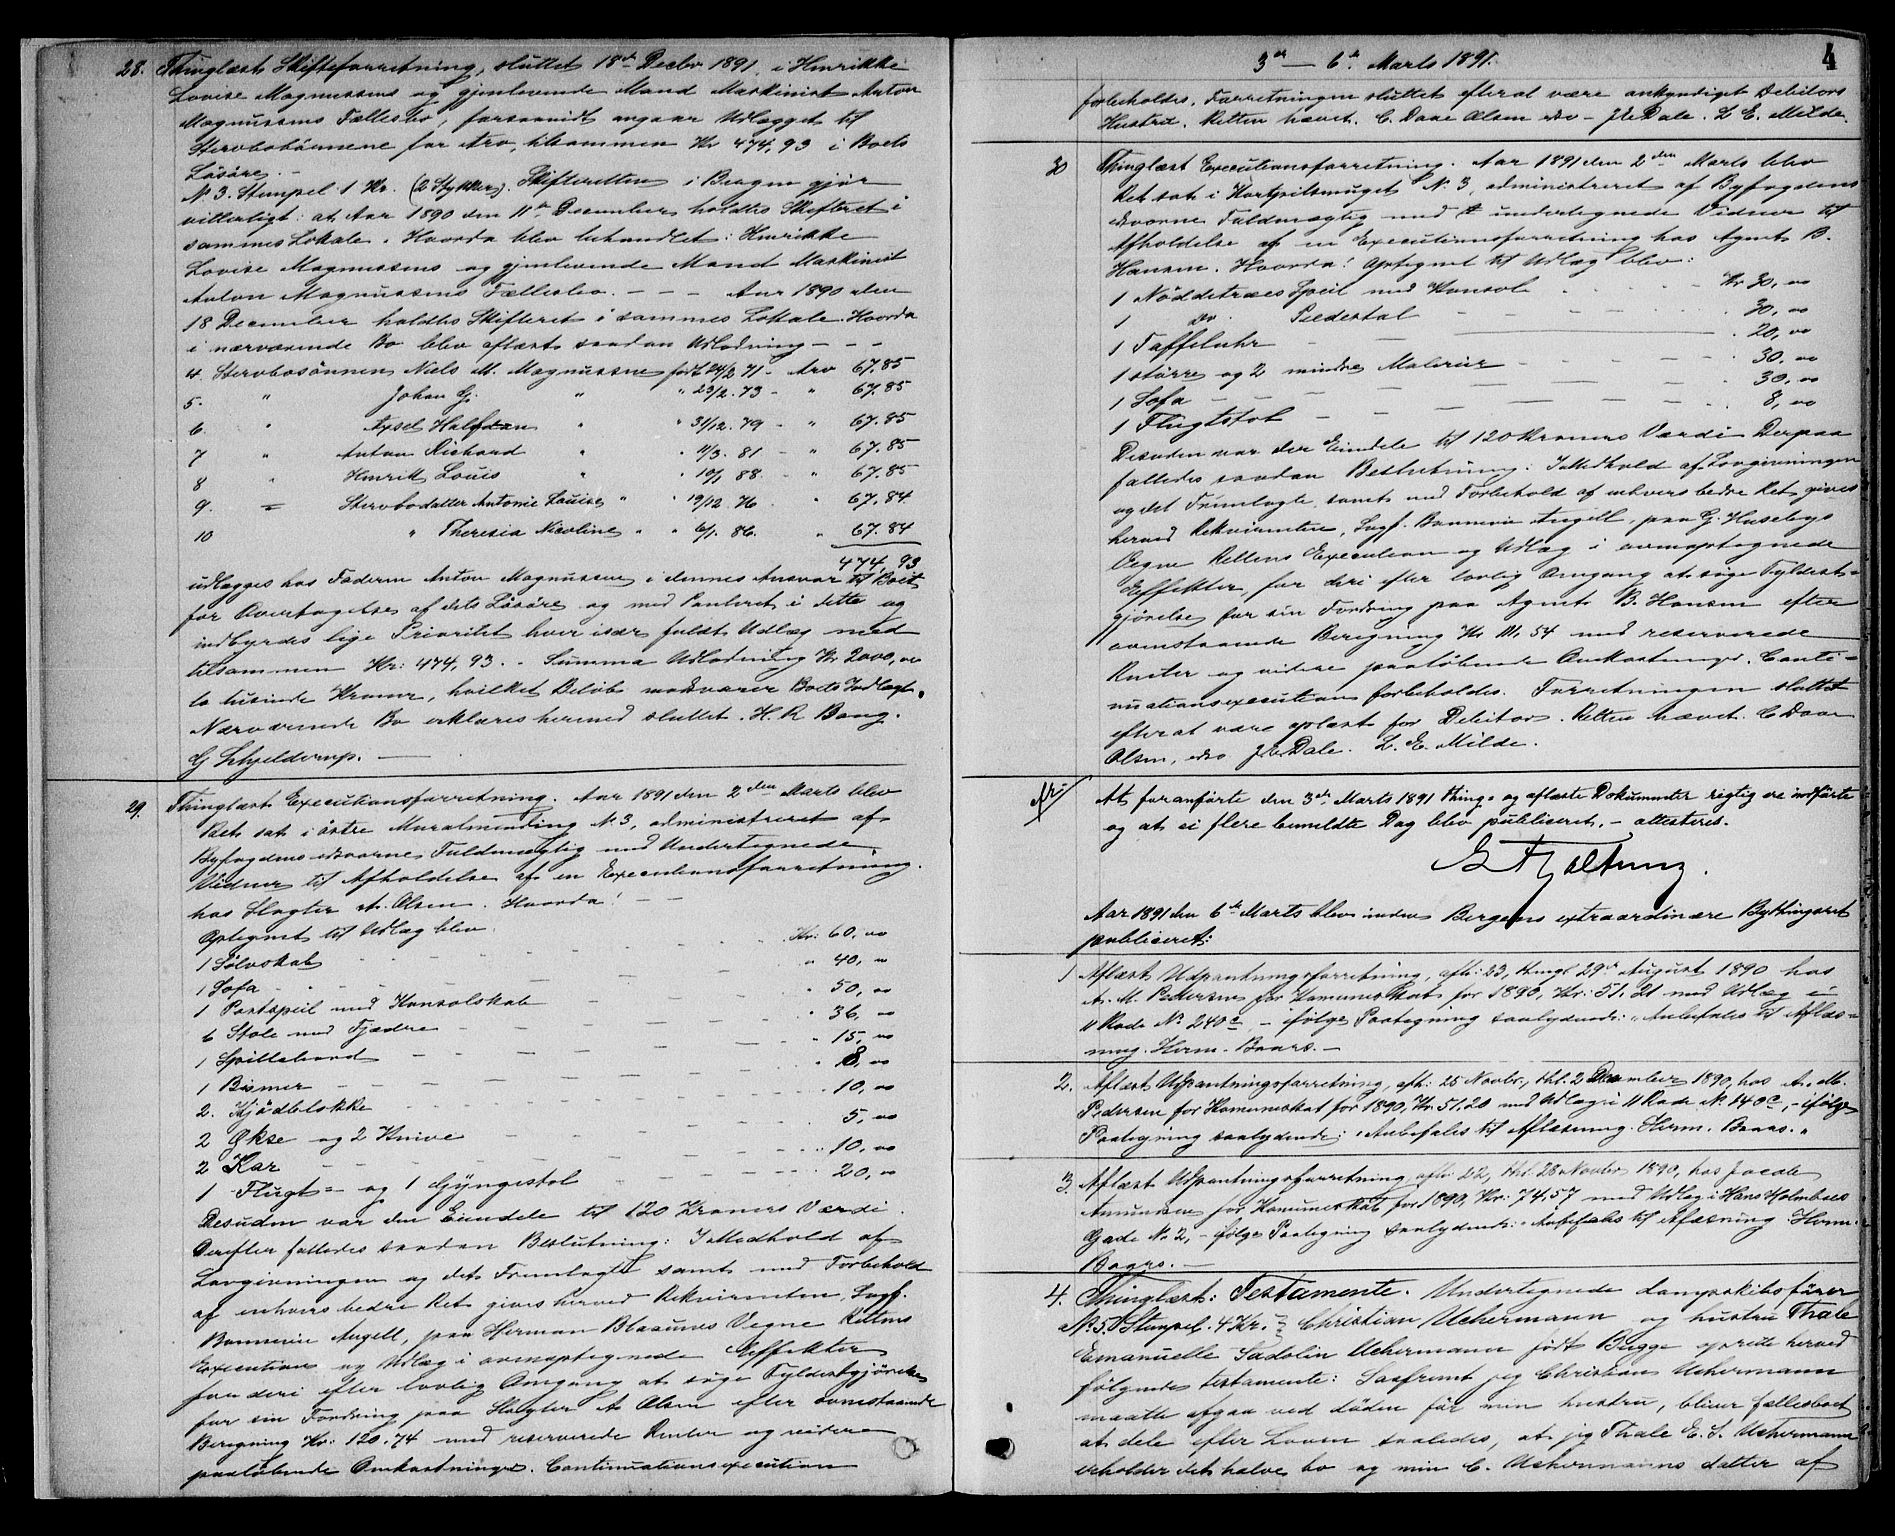 28. Thinglæst Skifteforretning, sluttet 18de Decbr 1891 i Henrikke
Lovise Magnussens og gjenlevende Mand Maskinist Anton
Magnussens Fællesbo, forsaavidt angaar Udlægget til
Stervbobørnene for Arv, tilsammen Kr 474,93 i Boets
Løsøre. -
N. 3. Stempel 1 Kr. (2 Stykker). Skifteretten i Bergen gjør
vitterligt: at Aar 1890 den 11te December holdtes Skifteret i
sammes Lokale. Hvorda blev behandlet: Henrikke
Lovise Magnussens og gjenlevende Mand Maskinist
Anton Magnussens Fællesbo. - - - Aar 1890 den
18 December holdtes Skifteret i sammes Lokale. Hvorda
i nærværende Bo blev aflæst saadan Udlodning - - -
4. Stervbosønnen Niels M. Magnussen født 24/2 71 - Arv 67.85
5. " Johan G. " " 23/2. 73 - " 67.85
6. " Axsel Halfdan " " 31/12. 79 - " 67.85
7 " Anton Richard " " 11/3. 81 - " 67.85
8 " Henrik Louis " " 10/1 88. - " 67.85
9. = Stervbodatter Antonie Louise " " 19/12 76 " 67.84
10 " Theresia Nicoline " " 6/1. 86. " 67.84
474,93
udlægges hos Faderen Anton Magnussen i dennes Ansvar til Boet
for Overtagelse af dets Løsøre og med Panteret i dette og
indbyrdes lige Prioritet hver især fuldt Udlæg med
tilsammen Kr: 474,93. - Summa Udlodning Kr 2000,00
to tusinde Kroner, hvilket Beløb modsvarer Boets Indtægt.
Nærværende Bo erklæres hermed sluttet. H. R Bang.
G Schjelderup. -
29. Thinglæst Executionsforretning. Aar 1891 den 2den Marts blev
Ret sat i østre Muralmending N. 3, administreret af
Byfogdens edsvorne Fuldmægtig med Undertegnede
Vidner til Afholdelse af en Executionsforretning
hos Slagter A. Olsen. Hvorda! - -
Optegnet til Udlæg blev.
1 Sølvskab Kr: 60,00
1 Sofa " 40,00
1 Portspeil med Konsolskab " 50,00
6 Stole med Fjædre " 36,00
1 Spillebord " 15,00
1 Bismer " 8,00
2. Kjødblokke " 10,00
2 Økse og 2 Knive 5,00
2 Kar 10,00
1 Flugt= og 1 Gyngestol 20,00
Desuden var der Eiendele til 120 Kroners Værdi.
Derefter falledes saadan Beslutning: I Medhold af
Lovgivningen og det Fremlagte samt med Forbehold
af enhvers bedre Ret gives herved Rekvirenten, Sagf.
Bonnevie Angell, paa Herman Blaauws Vegne Rettens
Execution og Udlæg i ovenoptegnede Effekter
for deri efter lovlig Omgang at søge Fyldestgjørelse
for sin Fordring paa Slagter A Olsen efter ovenstaaende
Beregning Kr: 120.74 med reserverede Renter og videre
paaløbende Omkostninger. Continuationsexecution
3de - 6te Marts 1891.
4
forbeholdes. Forretningen sluttet efterat være ankyndiget Debitors
Hustru. Retten hævet. C. Daae Olsen edsv - J. E. Dale. L. E. Milde.
30 Thinglæst Executionsforretning. Aar 1891 den 2den Marts blev
Ret sat i Hortgritsmuget N. 3, administreret af Byfogdens
edsvorne Fuldmægtig med undertegnede Vidner til
Afholdelse af en Executionsforretning hos Agent B.
Hansen. Hvorda! Optegnet til Udlæg blev:
1 Nøddetræes Speil med Konsole Kr 30,00
1 do Piedestal 30,00
1 Taffeluhr 20,00
1 større og 2 mindre Malerier 30,00
1 Sofa 30,00
1 Flugtstol 8,00
Desuden var der Eiendele til 120 Kroners Værdi Derpaa
falledes saadan Beslutning: I Medhold af Lovgivningen
og det Fremlagte samt med Forbehold af enhvers bedre Ret gives
herved Rekvirenten, Sagf. Bonnevie Angell, paa G. Husebys
Vegne Rettens Execution og Udlæg i ovenoptegnede
Effekter for deri efter lovlig Omgang at søge Fyldest=
gjørelse for sin Fordring paa Agent B. Hansen efter
ovenstaaende Beregning Kr 111.54 med reserverede
Renter og videre paaløbende Omkostninger. Conti=
nuationsexecution forbeholdes. Forretningen sluttet
efterat være oplæst for Debitor. Retten hævet. C Daae
Olsen, edsv J. E. Dale. L. E. Milde.
At foranførte den 3de Marts 1891 thing= og aflæste Dokumenter rigtig ere indførte
og at ei flere bemeldte Dag blev publiceret, - attesteres.
Aar 1891 den 6te Marts blev inden Bergens extraordinære Bythingsret
publiceret:
1 Aflæst Udpantningsforretning, afh: 23, thingl 29de August 1890 hos
A. M. Pedersen for Komuneskat for 1890, Kr: 51.21 med Udlæg i
11 Rode No 240c, - ifølge Paategning saalydende: "Anbefales til Aflæs=
ning. Herm. Baars. -
2. Aflæst Udpantningsforretning, afh: 25 Novbr, thl. 2 December 1890, hos A. M.
Pedersen for Komuneskat for 1890, Kr. 51.20 med Udlæg i 11 Rode No 140c, - ifølge
Paategning saalydende: "Anbefales til Aflæsning. Herm. Baars."
3. Aflæst Udpantningsforretning afh: 22, thl. 28 Novbr 1890, hos Jacob
Amundsen for Komuneskat for 1890, Kr: 74.57 med Udlæg i Hans Holmboes
Gade No 2, - ifølge Paategning saalydende: "Anbefales til Aflæsning Herm.
Baars. -
4. Thinglæst: Testamente. Undertegnede dampskibsfører
No 5. Stempel. 4 Kr. Christian Uchermann og hustru Thale
Emanuelle Sadolin Uchermann født Bugge oprette herved
følgende testamente: Saafremt jeg Christian Uchermann
maatte afgaa ved døden før min hustru, bliver fællesboet
at dele efter Loven saaledes, at jeg Thale E. S. Uchermann
erholder det halve bo og min C. Uchermanns datter af